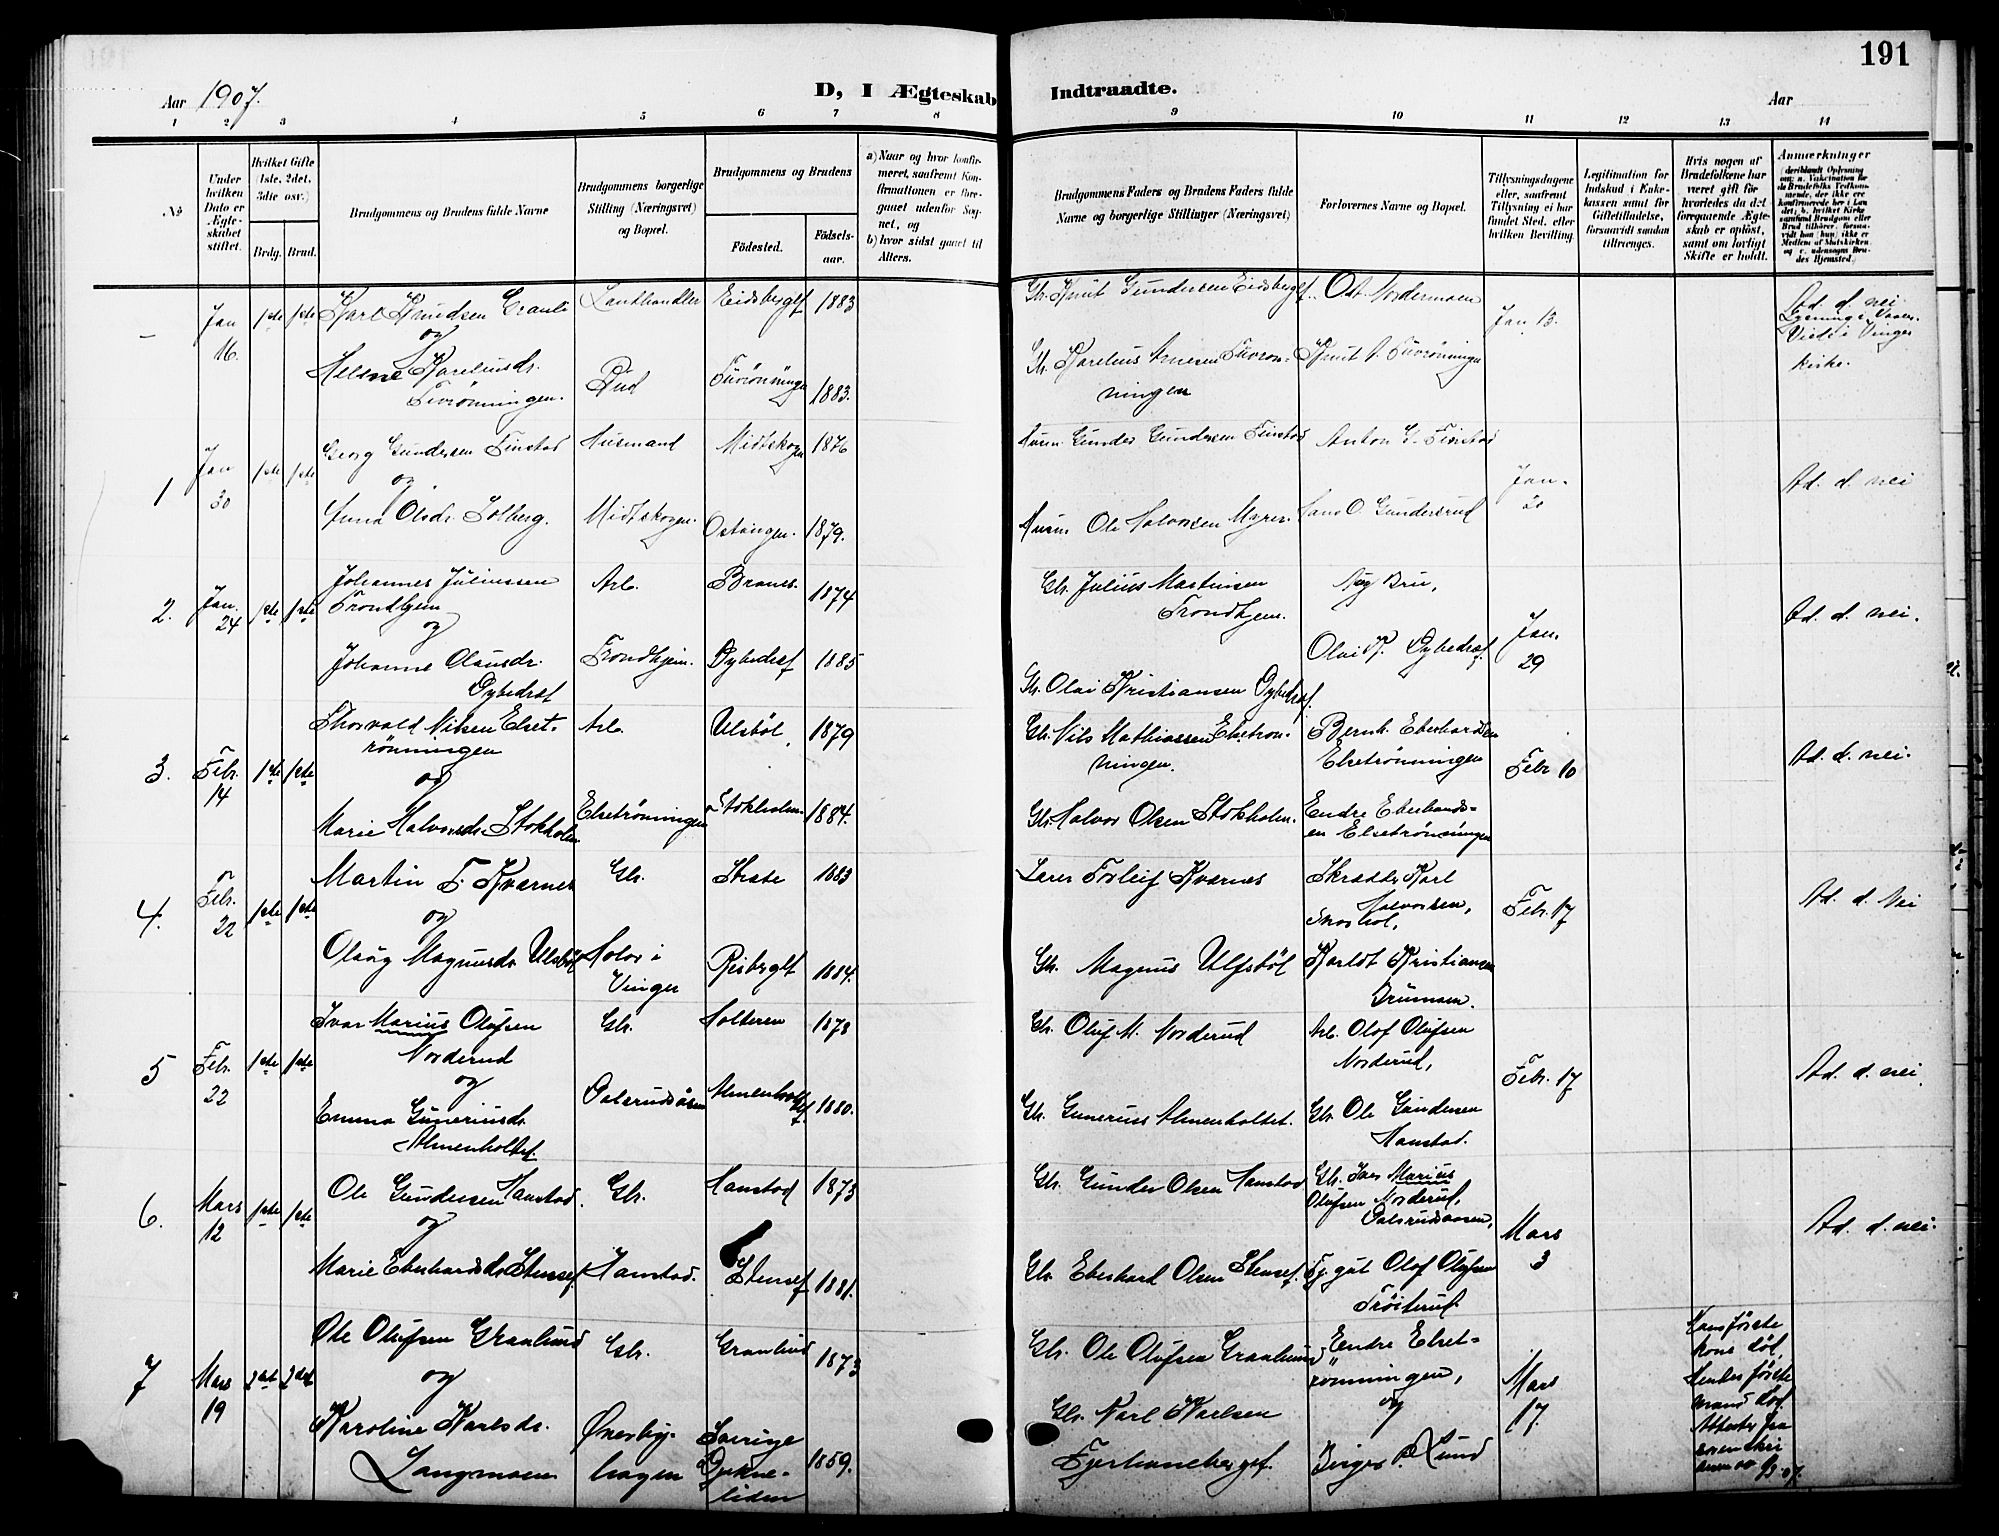 191
Aar 1907.
D, I Ægteskab Indtraadte.
Aar
1 2 3 4 5 6 7 8 9 10 11 12 13 14
No
Under hvilken Dato er Ægteskabet stiftet.
Hvilket Gifte (1ste, 2det, 3die osv.)
Brdg. Brud.
Brudgommens og Brudens fulde Navne
Brudgommens borgerlige Stilling (Næringsvei) og Bopæl.
Brudgommens og Brudens
Födested.
Födselsaar.
a) Naar og hvor konfirmeret, saafremt Konfirmationen er foregaaet udenfor Sognet, og
b) hvor sidst gaaet til Alters.
Brudgommens Faders og Brudens Faders fulde Navne og borgerlige Stillinger (Næringsvei)
Forlovernes Navne og Bopæl.
Tillysningsdagene eller, saafremt Tillysning ei har fundet Sted, efter hvilken Bevilling.
Legitimation for Indskud i Enkekassen samt for Giftetilladelse, forsaavidt saadan tiltrænges.
Hvis nogen af Brudefolkene har været gift før hvorledes da det foregaaende Ægteskab er opløst, samt om lovligt Skifte er holdt.
Anmærkninger
–
Jan 16
1ste 1ste
Karl Knudsen Granli
og
Helene Kareliusdr. Furrönningen.
Landhandler
Rud
Eidsbergf
Furrönninge
1883
1883.
Gbr. Knut Gundersen Eidsbergf.
Gbr. Karelius Arnesen Furrönningen
Ost. Nordermoen
Knut A. Furröningen
Jan 13.
Ad. d. nei
Lysning i Vaaler
Viet i Vinger kirke.
1
Jan 30
1ste 1ste
Georg Gundersen Finstad
og
Anna Olsdr. Solberg.
Husmand
Midtskogen.
Midtskogen
Ostangen.
1876
1879.
Husm. Gunder Gundersen Finstad
Husm. Ole Halvorsen Myrer
Anton G. Finstad
Hans O. Gundersrud
Jan. 20
Ad. d. nei
2.
Jan. 24
1ste 1ste
Johannes Juliussen Trondhjem
og
Johanne Olausdr. Dybedraf
Arb.
Trondhjem.
Branes
Dybedraf
1874
1885
Gbr. Julius Martinsen Trondhjem.
Gbr. Olai Kristiansen Dybedraf.
Aug Bru,
Olai K. Dybedraf.
Jan. 29
Ad. d. nei.
3.
Febr. 14
1ste 1ste
Thorvald Nilsen Elsetrönningen
og
Marie Halvorsdr. Stokholm
Arb.
Elsetröningen
Ulsböl
Stokholm
1879
1884.
Gbr. Nils Mathiassen Elsetronningen.
Gbr. Halvor Olsen Stokholm.
Bernh. Eberhardsen Elsetrönningen
Endre Eberhardsen Elsetrönningen
Febr 10
Ad. d. nei.
4.
Febr. 22
1ste 1ste
Martin T. Kvarnes
og
Olaug Magnusdr Ulsböl
Gbr.
Holor i Vinger
Strate
Risbergf
1883
1884.
Lærer Torleif Kvarnes
Gbr. Magnus Ulfsböl
Skradder Karl Halvorsen,
Karldt Kristiansen Brumoen.
Febr. 17
Ad. d. Nei
5
Febr. 22
1ste 1ste
Ivar Marius Olufsen Norderud
og
Emma Guneriusdr. Almenholtet.
Gbr.
Palsrudåsen
Holteren
Almenholtef.
1873
1880.
Gbr. Oluf M. Norderud
Gbr. Gunerius Almenholtet.
Arb. Olof Olufsen Norderud,
Gbr. Ole Gundersen Hanstad.
Febr. 17
Ad. d. nei.
6.
Mars 12
1ste 1ste
Ole Gundersen Hanstad
og
Marie Eberhardsdr Stensef
Gbr.
Hanstad.
Hanstad
Stensef
1873
1881.
Gbr. Gunder Olsen Hanstad
Gbr. Eberhard Olsen Stensef.
Gbr. Ivar Marius Olufsen Norderud, Palsrudaasen,
Tj. gut Olof Olufsen Tröiterud.
Mars 3
Ad. d. nei.
7
Mars 19
2det 2det
Ole Olufsen Granlund
og
Karoline Karlsdr. Langmoen
Gbr.
Överbyhagen
Granlund
Sverige
1873
1859.
Gbr. Ole Olufsen Granlund
Gbr. Karl Karlsen Fjerhaneberget.
Endre Elsetrönningen,
og
Birger P. Lund
Mars 17.
Hans förste kone död,
Hendes förste mand död.